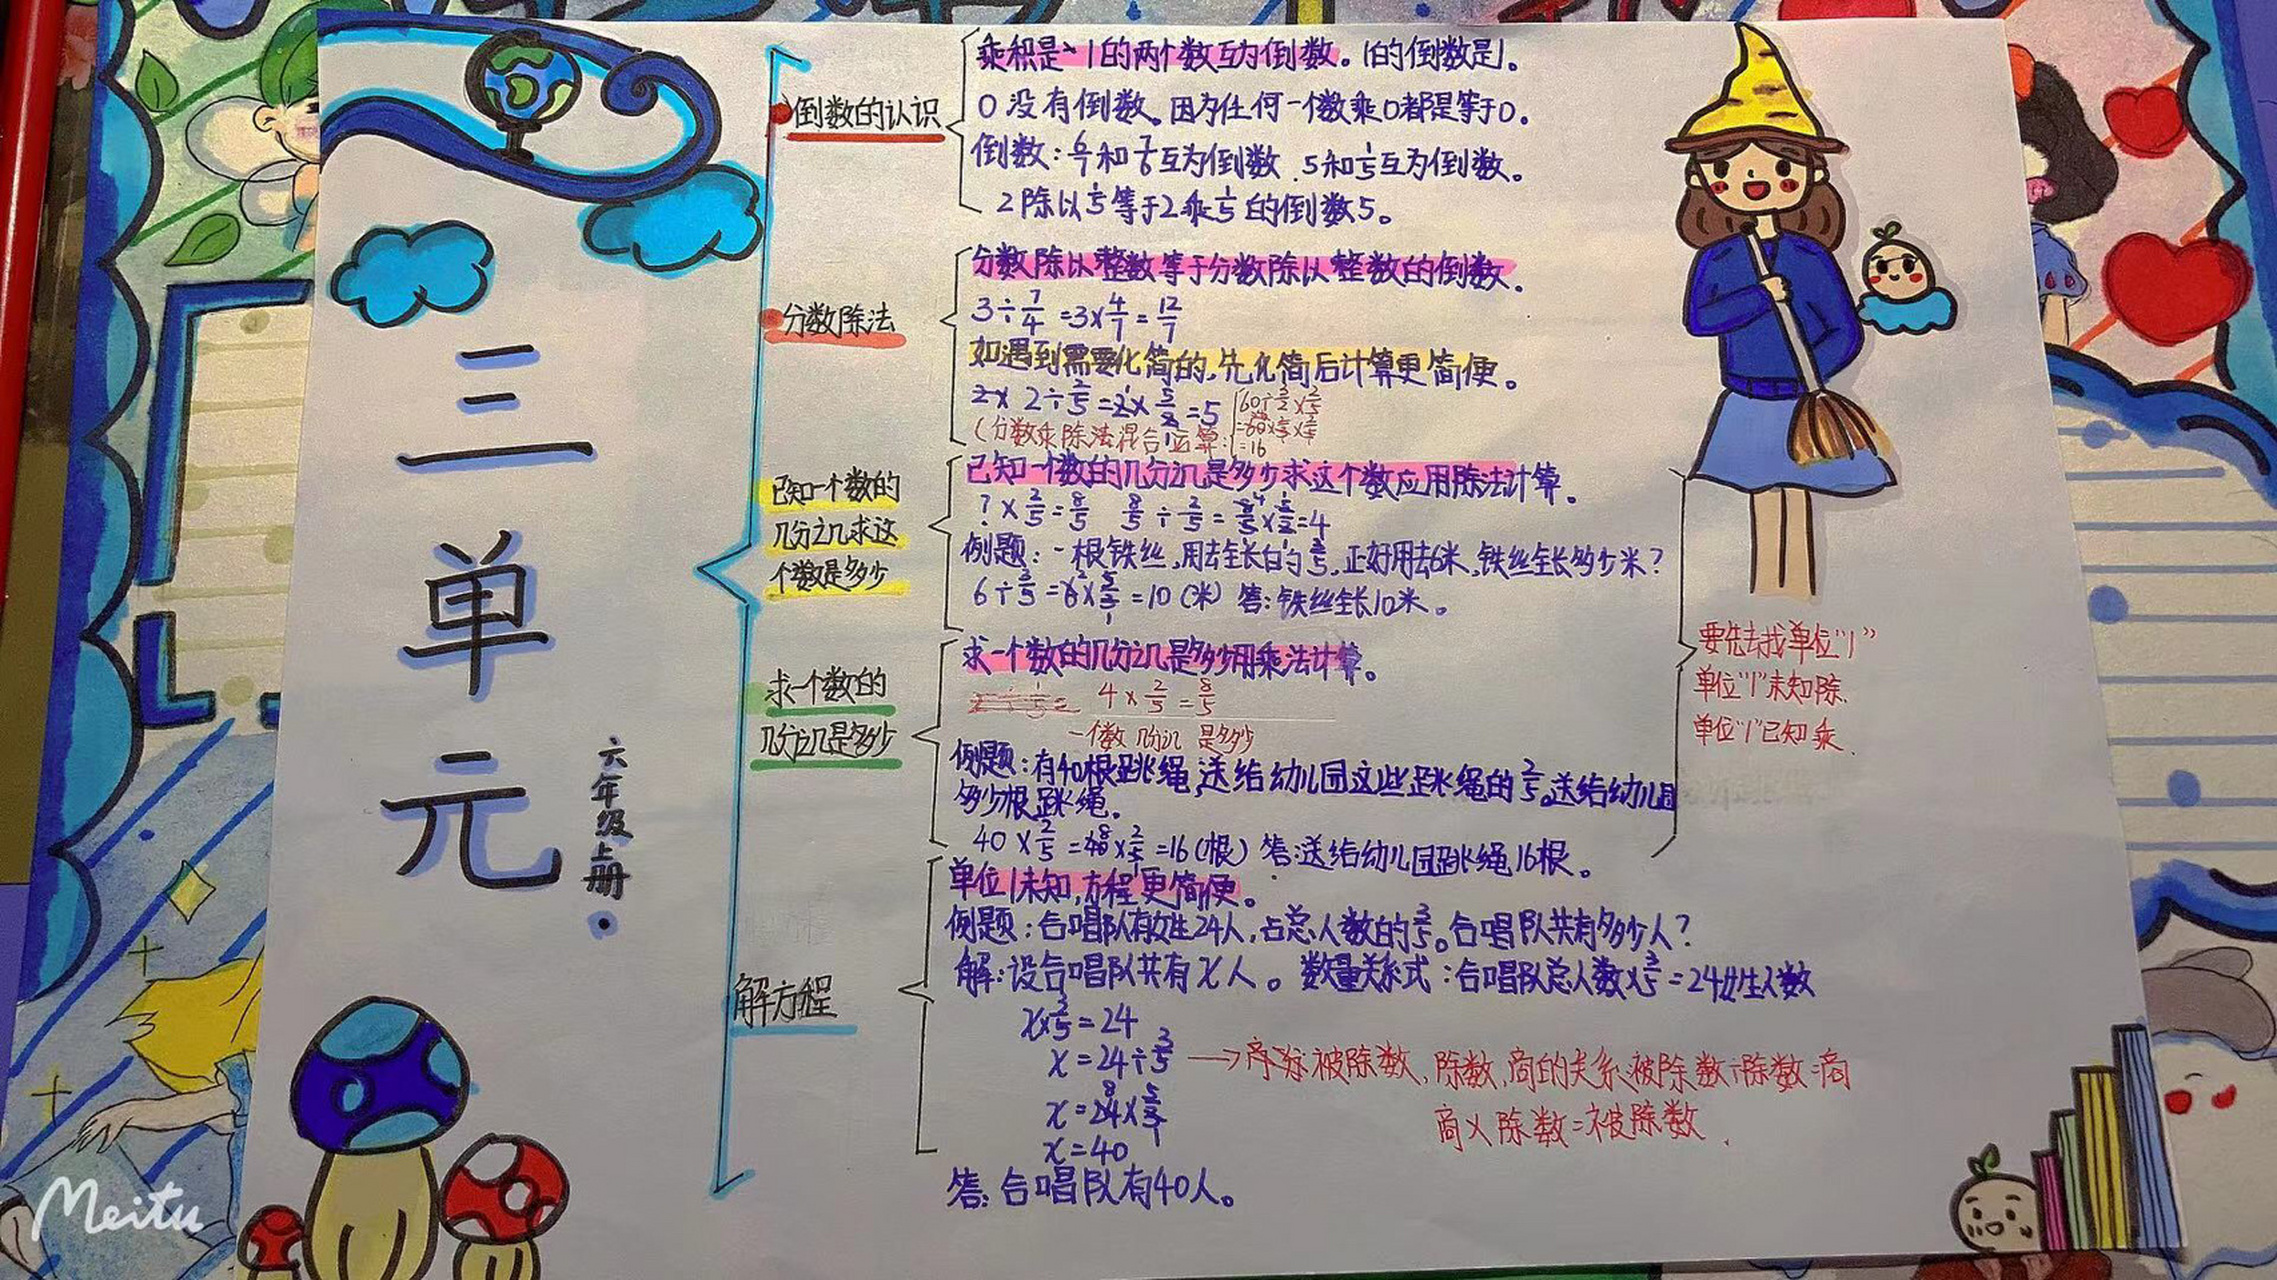 三单元
六年级上册
倒数的认识
乘积是1的两个数互为倒数。1的倒数是1。
0没有倒数。因为任何一个数乘0都是等于0。
倒数：6/7和7/6互为倒数.5和1/5互为倒数。
2除以1/5等于2乘1/5的倒数5。
分数除法
分数除以整数等于分数除以整数的倒数。
3÷7/4=3×4/7=12/7
如遇到需要化简的，先化简后计算更简便。
2÷2/5=2×5/2=5
(分数乘除法混合运算:
60÷3/2×2/5
=60×2/3×2/5
=16
已知一个数的
几分之几求这
个数是多少
已知一个数的几分之几是多少求这个数应用除法计算。
?×2/5=8/5 8/5÷2/5=8/5×5/2=4
例题：一根铁丝,用去全长的3/5,正好用去6米,铁丝全长多少米?
6÷3/5=6×5/3=10(米) 答:铁丝全长10米。
求一个数的
几分之几是多少
求一个数的几分之几是多少用乘法计算。
4×2/5=8/5
一个数 几分之几 是多少
例题：有40根跳绳,送给幼儿园这些跳绳的2/5。送给幼儿园
多少根跳绳。
40×2/5=40×2/5=16(根) 答:送给幼儿园跳绳16根。
要先去找单位“1”
单位“1”未知除.
单位“1”已知乘.
解方程
单位1未知,方程更简便。
例题：合唱队有女生24人,占总人数的3/5。合唱队共有多少人?
解:设合唱队共有x人。数量关系式:合唱队总人数×3/5=24女生人数
x×3/5=24
x=24÷3/5
→ 被除数,除数,商的关系:被除数÷除数=商
x=24×5/3
商×除数=被除数.
x=40
答:合唱队有40人。
Meitu